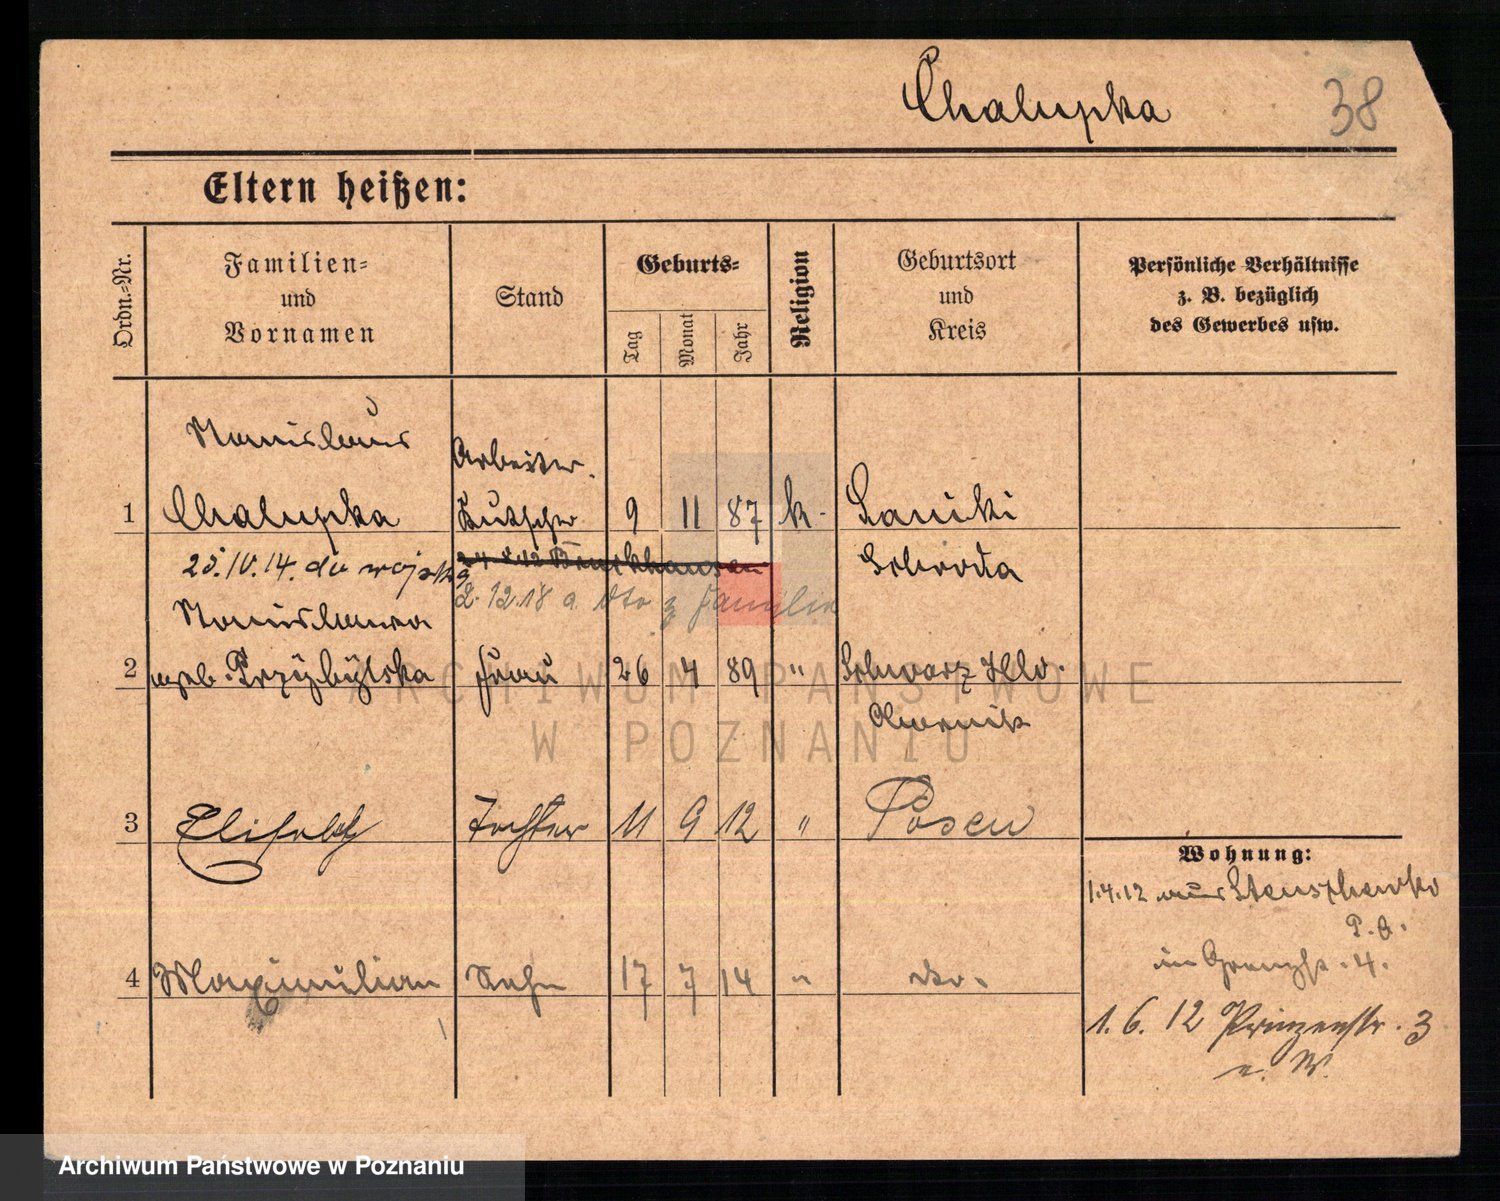 Chalupka 38
Eltern heißen:
Ordn.-Nr.
Familien-
und
Vornamen
Stand
Geburts-
Tag
Monat
Jahr
Religion
Geburtsort
und
Kreis
Persönliche Verhältnisse
z. B. bezüglich
des Gewerbes usw.
Stanislaus
Arbeiter.
1 Chalupka Kutscher 9 11 87 k. Saniki
25.IV.14. do wojsk
Schroda
2.12.18 a. dto z Familie
Stanislawa
2 geb. Przybylska Frau 26 4 89 " Schwarz Hld.
Obornik
3 Elisabeth Tochter 11 9 12 " Posen
Wohnung:
1.4.12 aus
P. O.
4 Maximilian Sohn 17 7 14 " dto.
in Grenzstr. 4.
1. 6. 12 Prinzenstr. 3
a. W.
ARCHIWUM PAŃSTWOWE
W POZNANIU
Archiwum Państwowe w Poznaniu